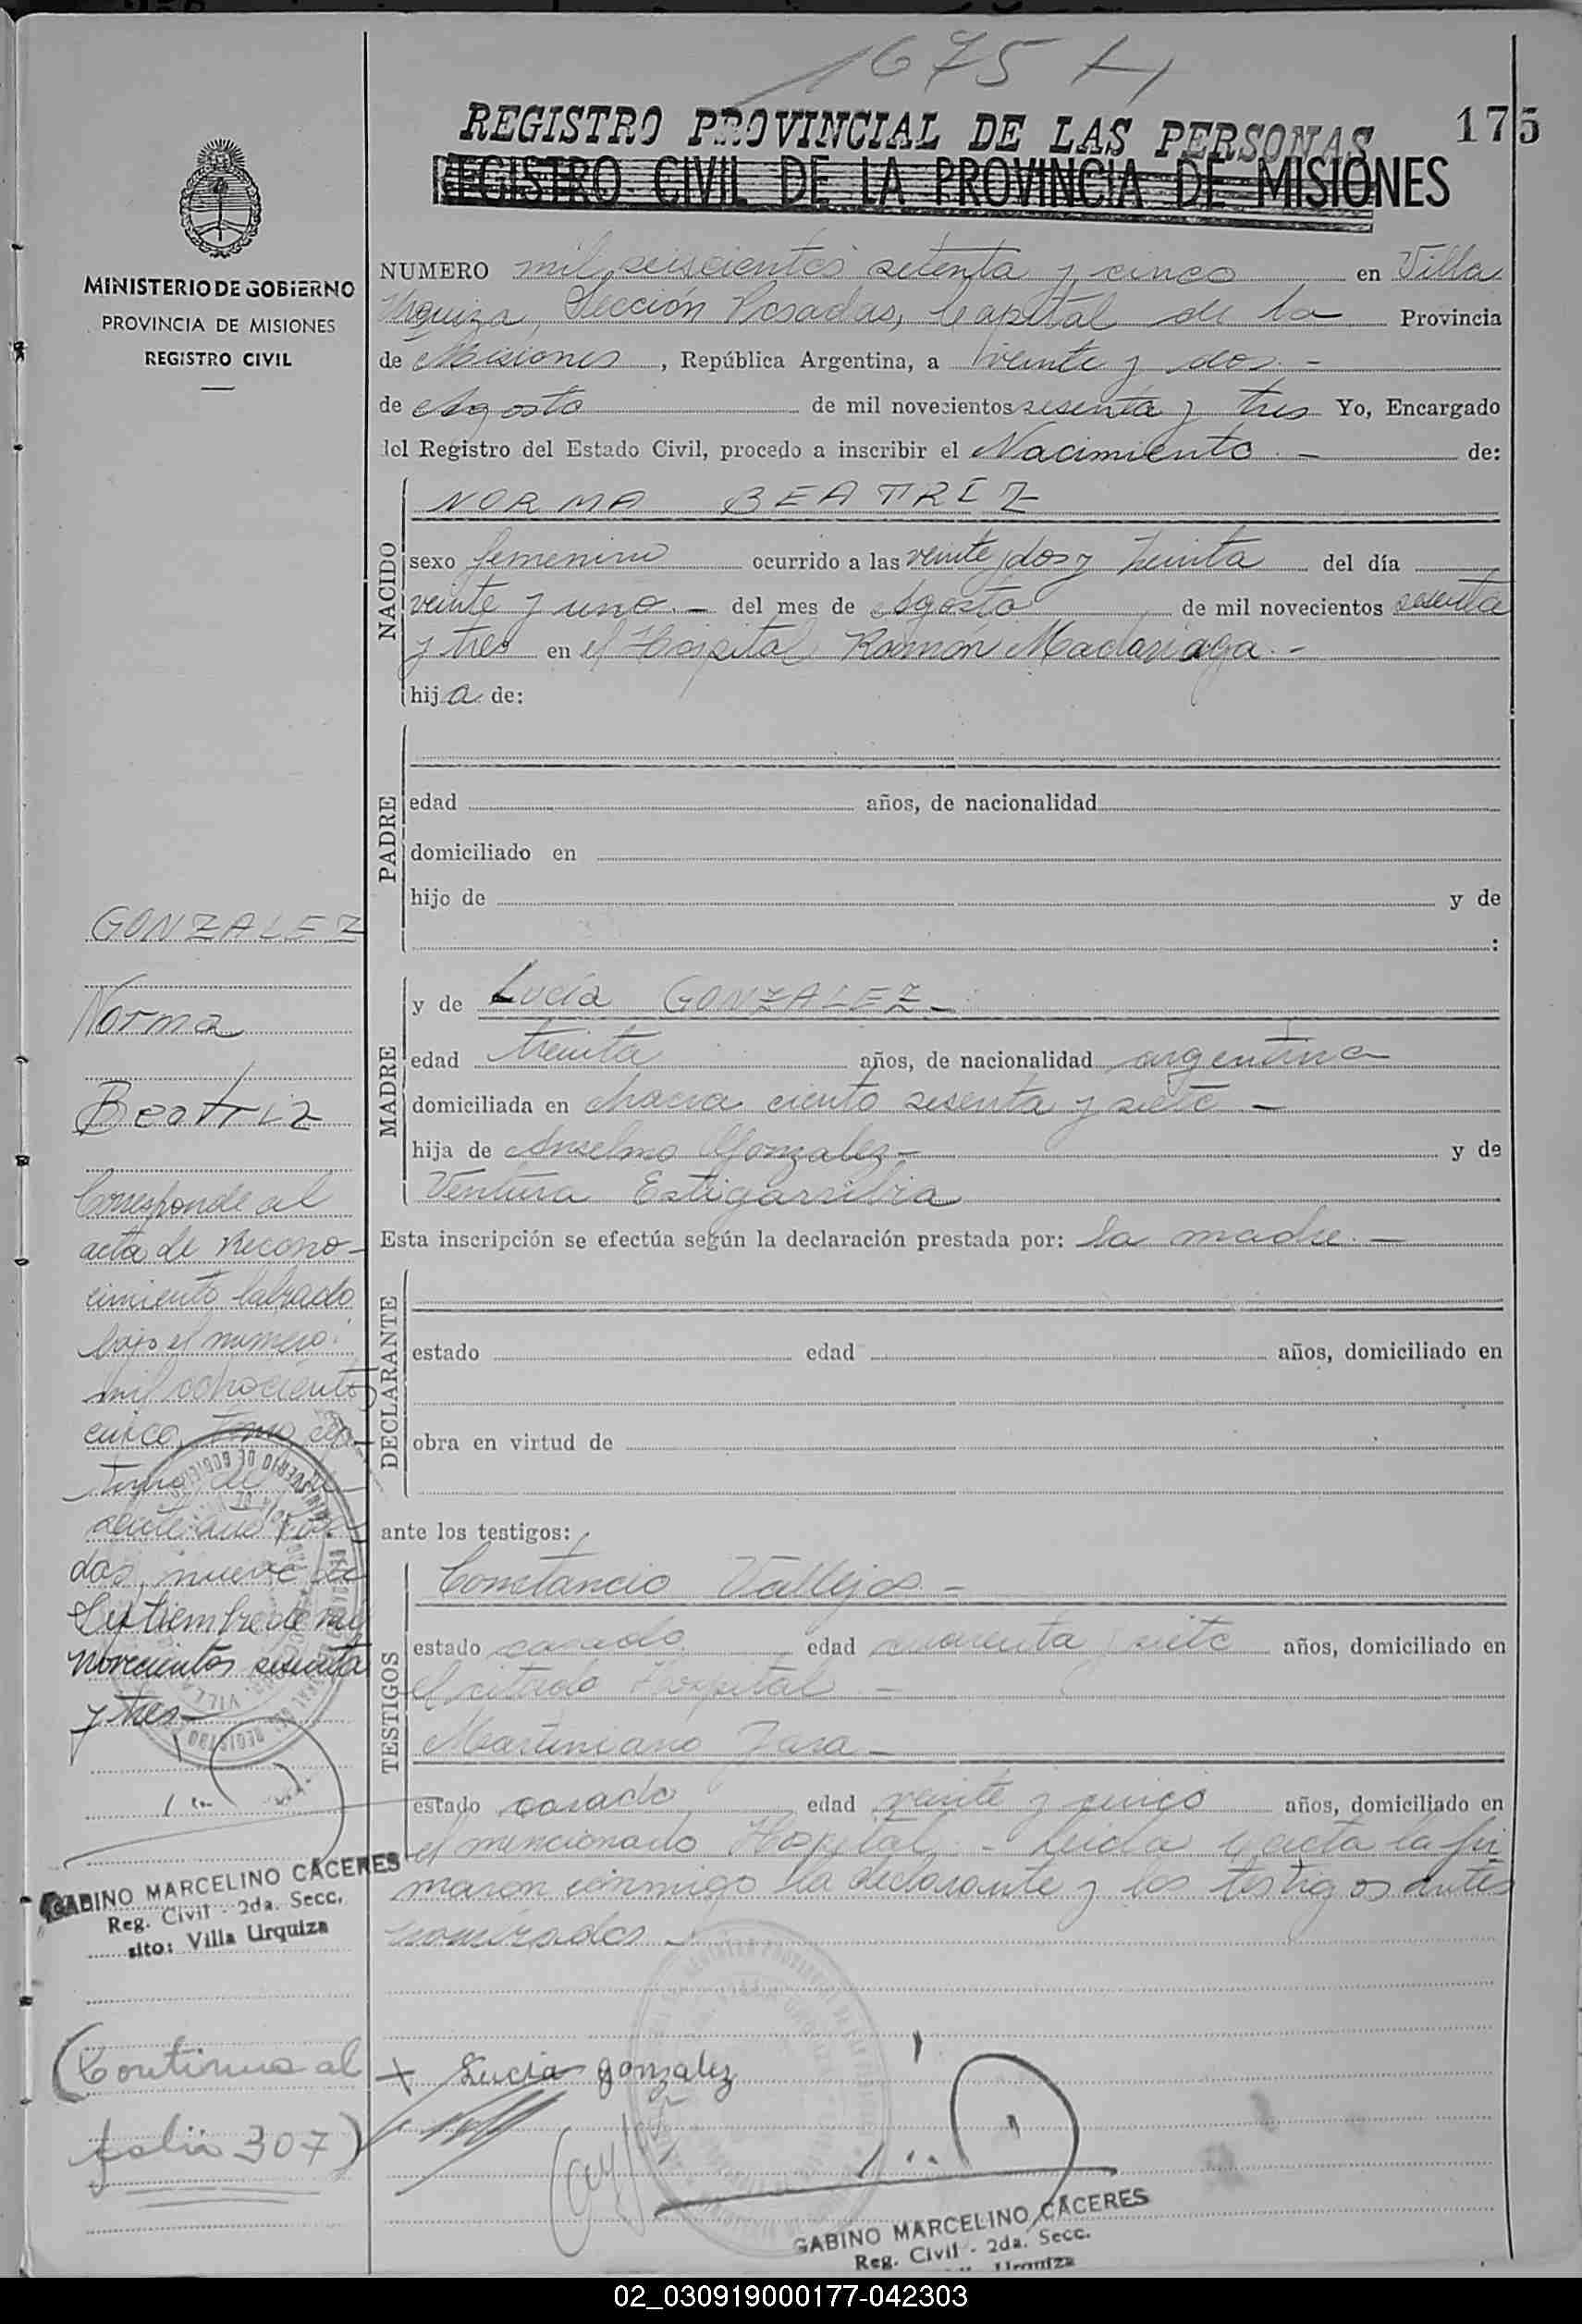 1675 H
175
REGISTRO PROVINCIAL DE LAS PERSONAS
REGISTRO CIVIL DE LA PROVINCIA DE MISIONES
MINISTERIO DE GOBIERNO
PROVINCIA DE MISIONES
REGISTRO CIVIL
NUMERO mil seiscientos setenta y cinco en Villa
Urquiza, Sección Posadas, Capital de la Provincia
de Misiones, República Argentina, a veinte y dos.-
de Agosto de mil novecientos sesenta y tres Yo, Encargado
del Registro del Estado Civil, procedo a inscribir el Nacimiento.- de:
NACIDO
NORMA BEATRIZ
sexo femenino ocurrido a las veinte y dos y treinta del día
veinte y uno.- del mes de Agosto de mil novecientos sesenta
y tres en el Hospital Ramón Madariaga.-
hija de:
PADRE
edad años, de nacionalidad
domiciliado en
hijo de y de
:
MADRE
y de Lucía GONZALEZ.-
edad treinta años, de nacionalidad argentina
domiciliada en chacra ciento sesenta y siete -
hija de Anselmo Gonzalez- y de
Ventura Estigarribia
Esta inscripción se efectúa según la declaración prestada por: la madre.-
DECLARANTE
estado edad años, domiciliado en
obra en virtud de
ante los testigos:
TESTIGOS
Constancio Vallejos.-
estado casado edad cuarenta y siete años, domiciliado en
el citado Hospital -
Martiniano Jara-
estado casado edad veinte y cinco años, domiciliado en
el mencionado Hospital.- Leida el acta la fir
maron conmigo la declarante y los testigos antes
nombrados.-
GONZALEZ
Norma
Beatriz
Corresponde al
acta de Recono-
cimiento labrado
bajo el numero:
mil ochocientos
cinco, Tomo
das, nueve de
Septiembre de mil
novecientos sesenta
y tres-
GABINO MARCELINO CACERES
Reg. Civil - 2da. Secc.
sito: Villa Urquiza
(Continua al
folio 307)
Lucia gonzalez
GABINO MARCELINO CACERES
Reg. Civil - 2da. Secc.
Urquiza
02_030919000177-042303